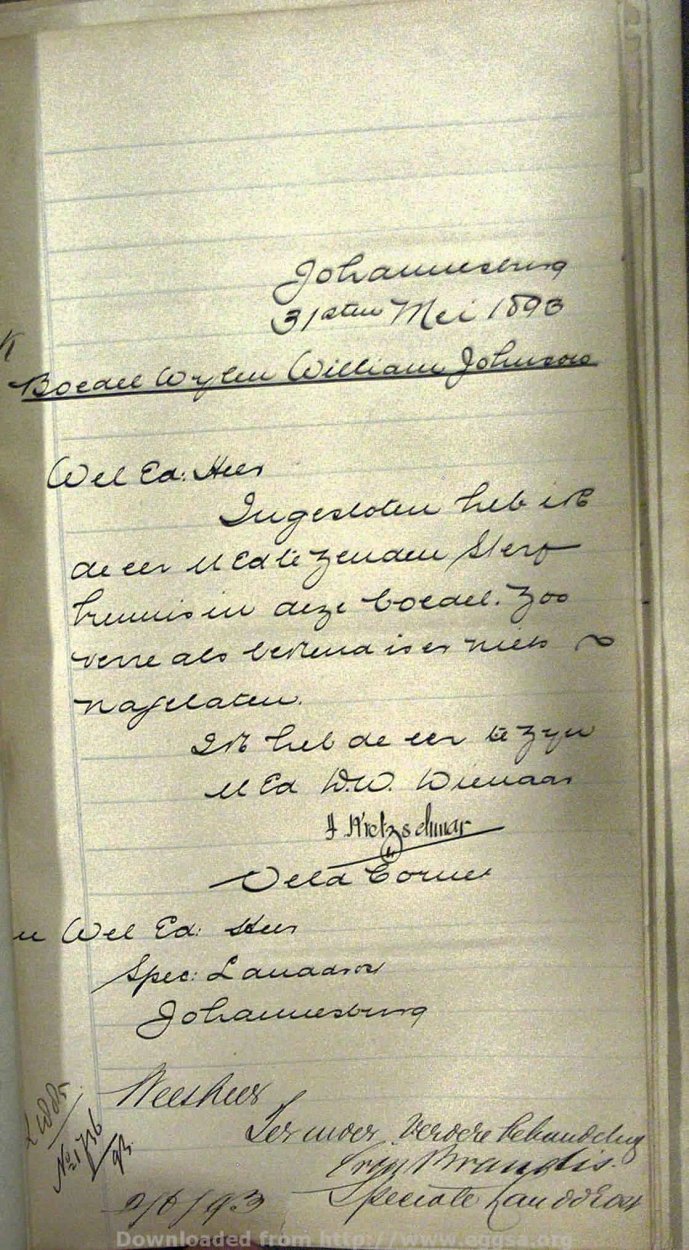 Johannesburg
31sten Mei 1893
Boedel Wylen William Johnson
Wel Ed: Heer
Ingesloten heb ik
de eer U Ed te zenden Sterf
kennis in deze boedel. Zoo
verre als bekend is er niets
nagelaten.
Ik heb de eer te zyn
U Ed D.W. Dienaar
A Kretzschmar
Veld Cornet
Wel Ed: Heer
Spec: Landdrost
Johannesburg
Weesheer
Ter uwer verdere behandeling
Brandis.
Speciale Landdrost
2/6/93
No 1736
/93
Downloaded from http://www.eggsa.org